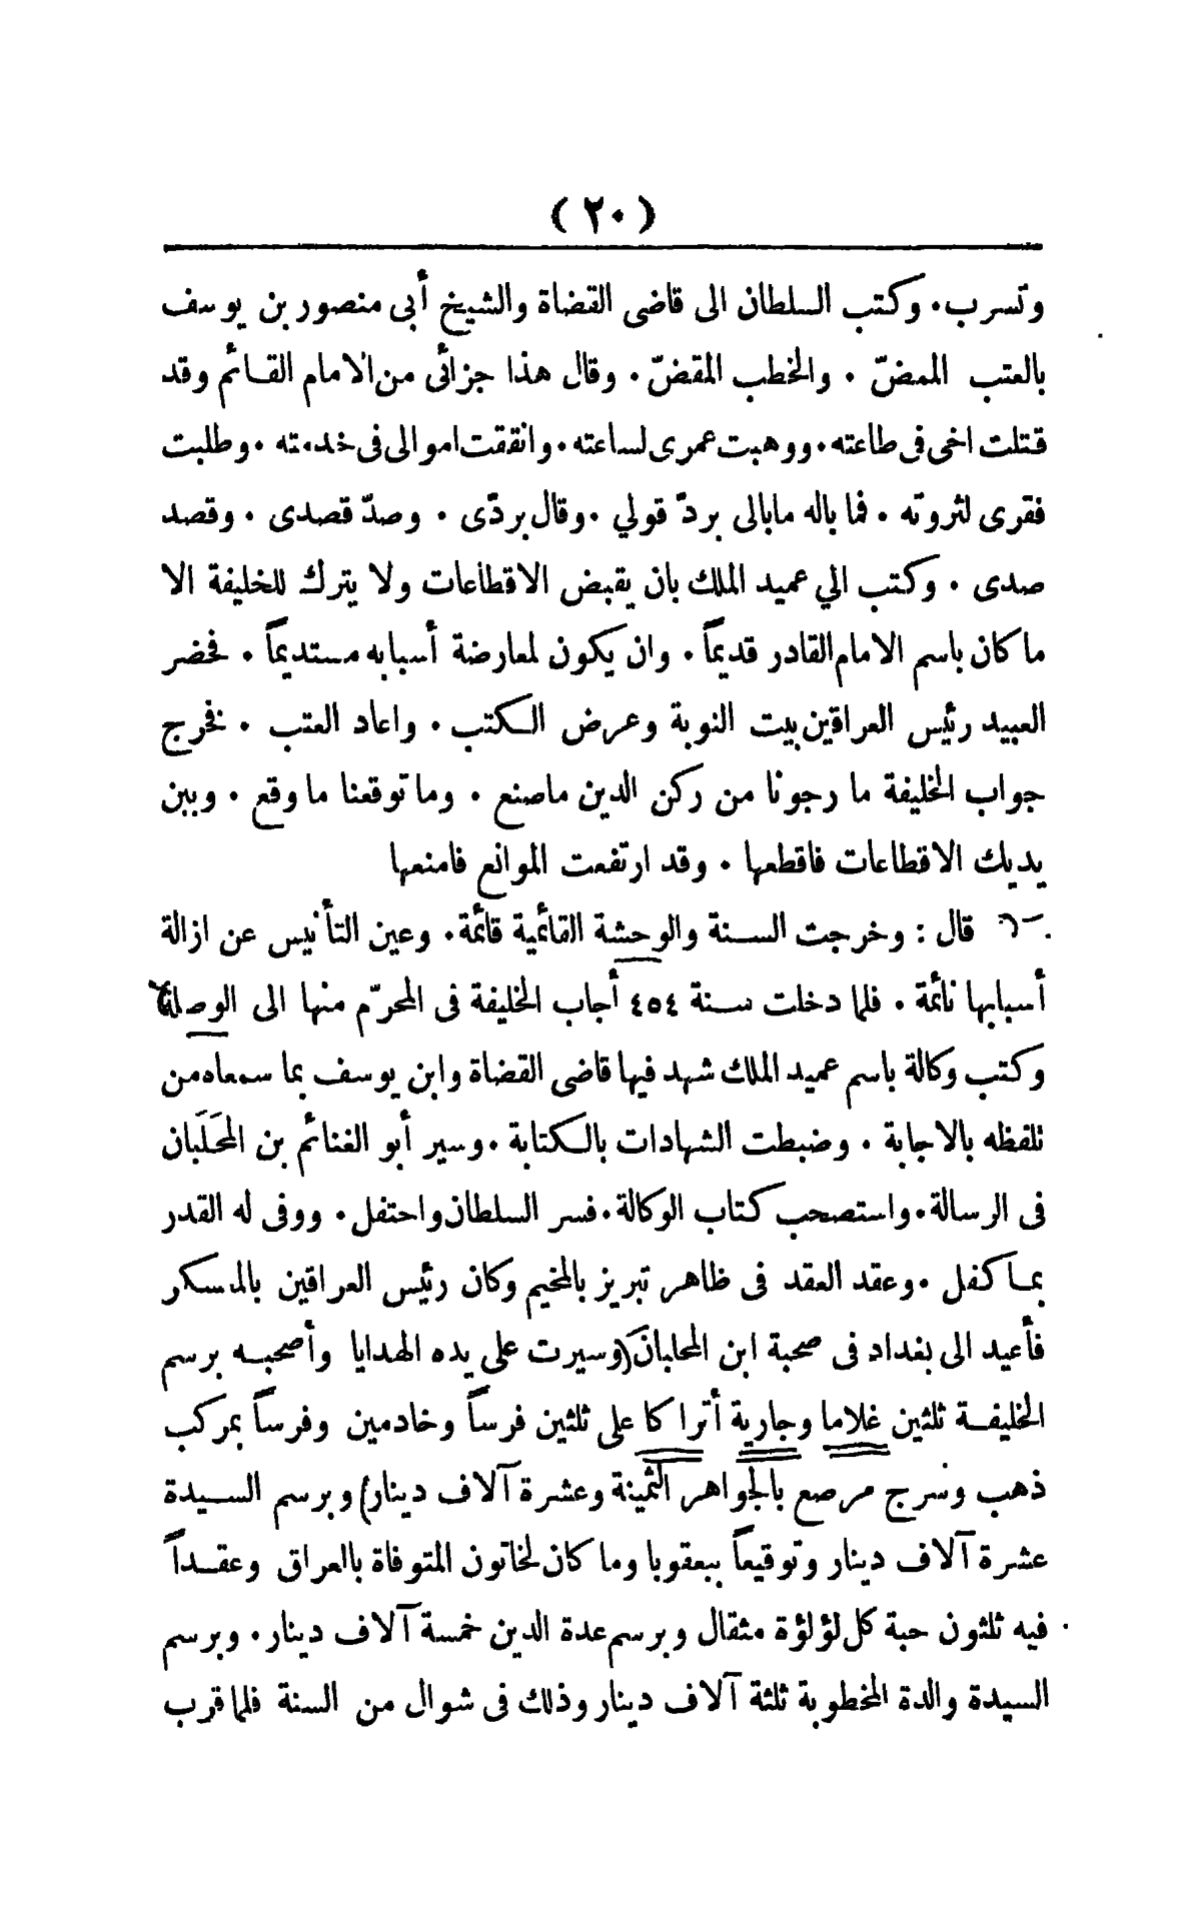 ( ٢٠ )
وتسرب. وكتب السلطان الى قاضى القضاة والشيخ أبى منصور بن يوسف
بالعتب الممضّ . والخطب المقضّ . وقال هذا جزائى من الامام القائم وقد
قتلت اخى فى طاعته. ووهبت عمرى لساعته. وانققت اموالى فى خدمته . وطلبت
فقرى لثروته . فما باله مابالى بردّ قولي . وقال بردّى . وصدّ قصدى . وقصد
صدى . وكتب الي عميد الملك بان يقبض الاقطاعات ولا يترك للخليفة الا
ما كان باسم الامام القادر قديماً . وان يكون لمعارضة أسبابه مستديماً . فحضر
العبيد رئيس العراقين بيت النوبة وعرض الكتب . واعاد العتب . فخرج
جواب الخليفة ما رجونا من ركن الدين ماصنع . وما توقعنا ما وقع . وبين
يديك الاقطاعات فاقطعها . وقد ارتفعت الموانع فامنعها
قال : وخرجت السنة والوحشة القائمية قائمة. وعين التأنيس عن ازالة
أسبابها نائمة . فلما دخلت سنة ٤٥٤ أجاب الخليفة فى المحرّم منها الى الوصلة
وكتب وكالة باسم عميد الملك شهد فيها قاضى القضاة وابن يوسف بما سمعاه من
تلفظه بالاجابة . وضبطت الشهادات بالكتابة . وسير أبو الغنائم بن المحَلَبان
فى الرسالة. واستصحب كتاب الوكالة. فسر السلطان واحتفل. ووفى له القدر
بما كفل . وعقد العقد فى ظاهر تبريز بالمخيم وكان رئيس العراقين بالمسكر
فأعيد الى بغداد فى صحبة ابن المحلبان (وسيرت على يده الهدايا وأصحبه برسم
الخليفة ثلثين غلاما وجارية أتراكا على ثلثين فرساً وخادمين وفرساً بمركب
ذهب وسرج مرصع بالجواهر الثمينة وعشرة آلاف دينار) وبرسم السيدة
عشرة آلاف دينار وتوقيعاً ببعقوبا وما كان لخاتون المتوفاة بالعراق وعقداً
فيه ثلثون حبة كل لؤلؤة مثقال وبرسم عدة الدين خمسة آلاف دينار. وبرسم
السيدة والدة المخطوبة ثلثة آلاف دينار وذلك فى شوال من السنة فلما قرب